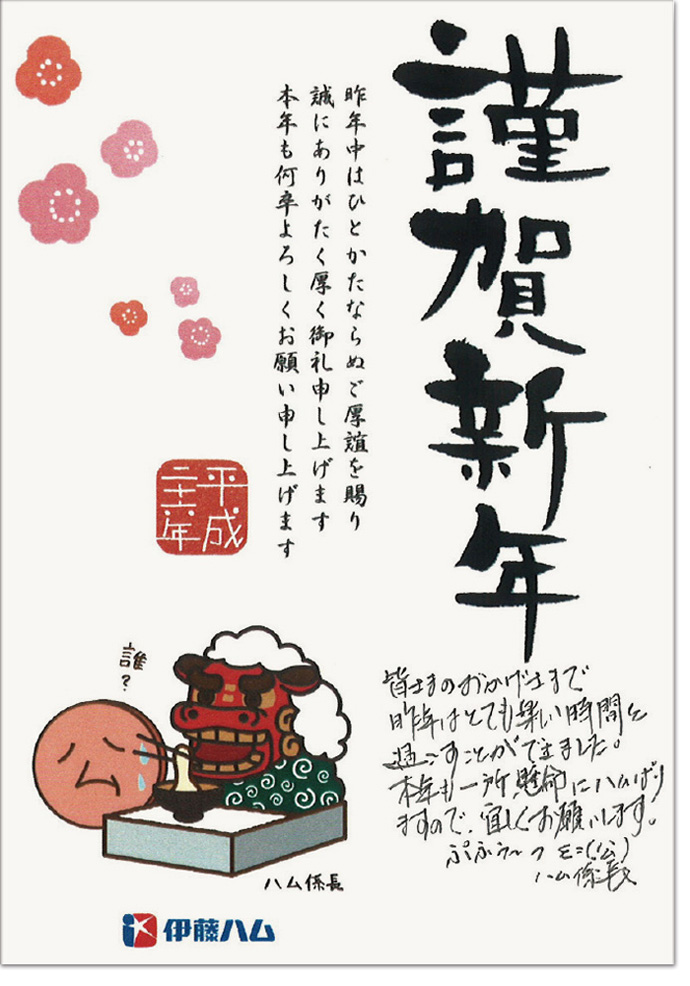 謹賀新年
昨年中はひとかたならぬご厚誼を賜り
誠にありがたく厚く御礼申し上げます
本年も何卒よろしくお願い申し上げます
平成
誰?
ハム係長
皆さまのおかげさまで
昨年はとても楽しい時間を
過ごすことができました。
本年も一所懸命にハムばり
ますので、宜しくお願いします。
ハム係長
伊藤ハム